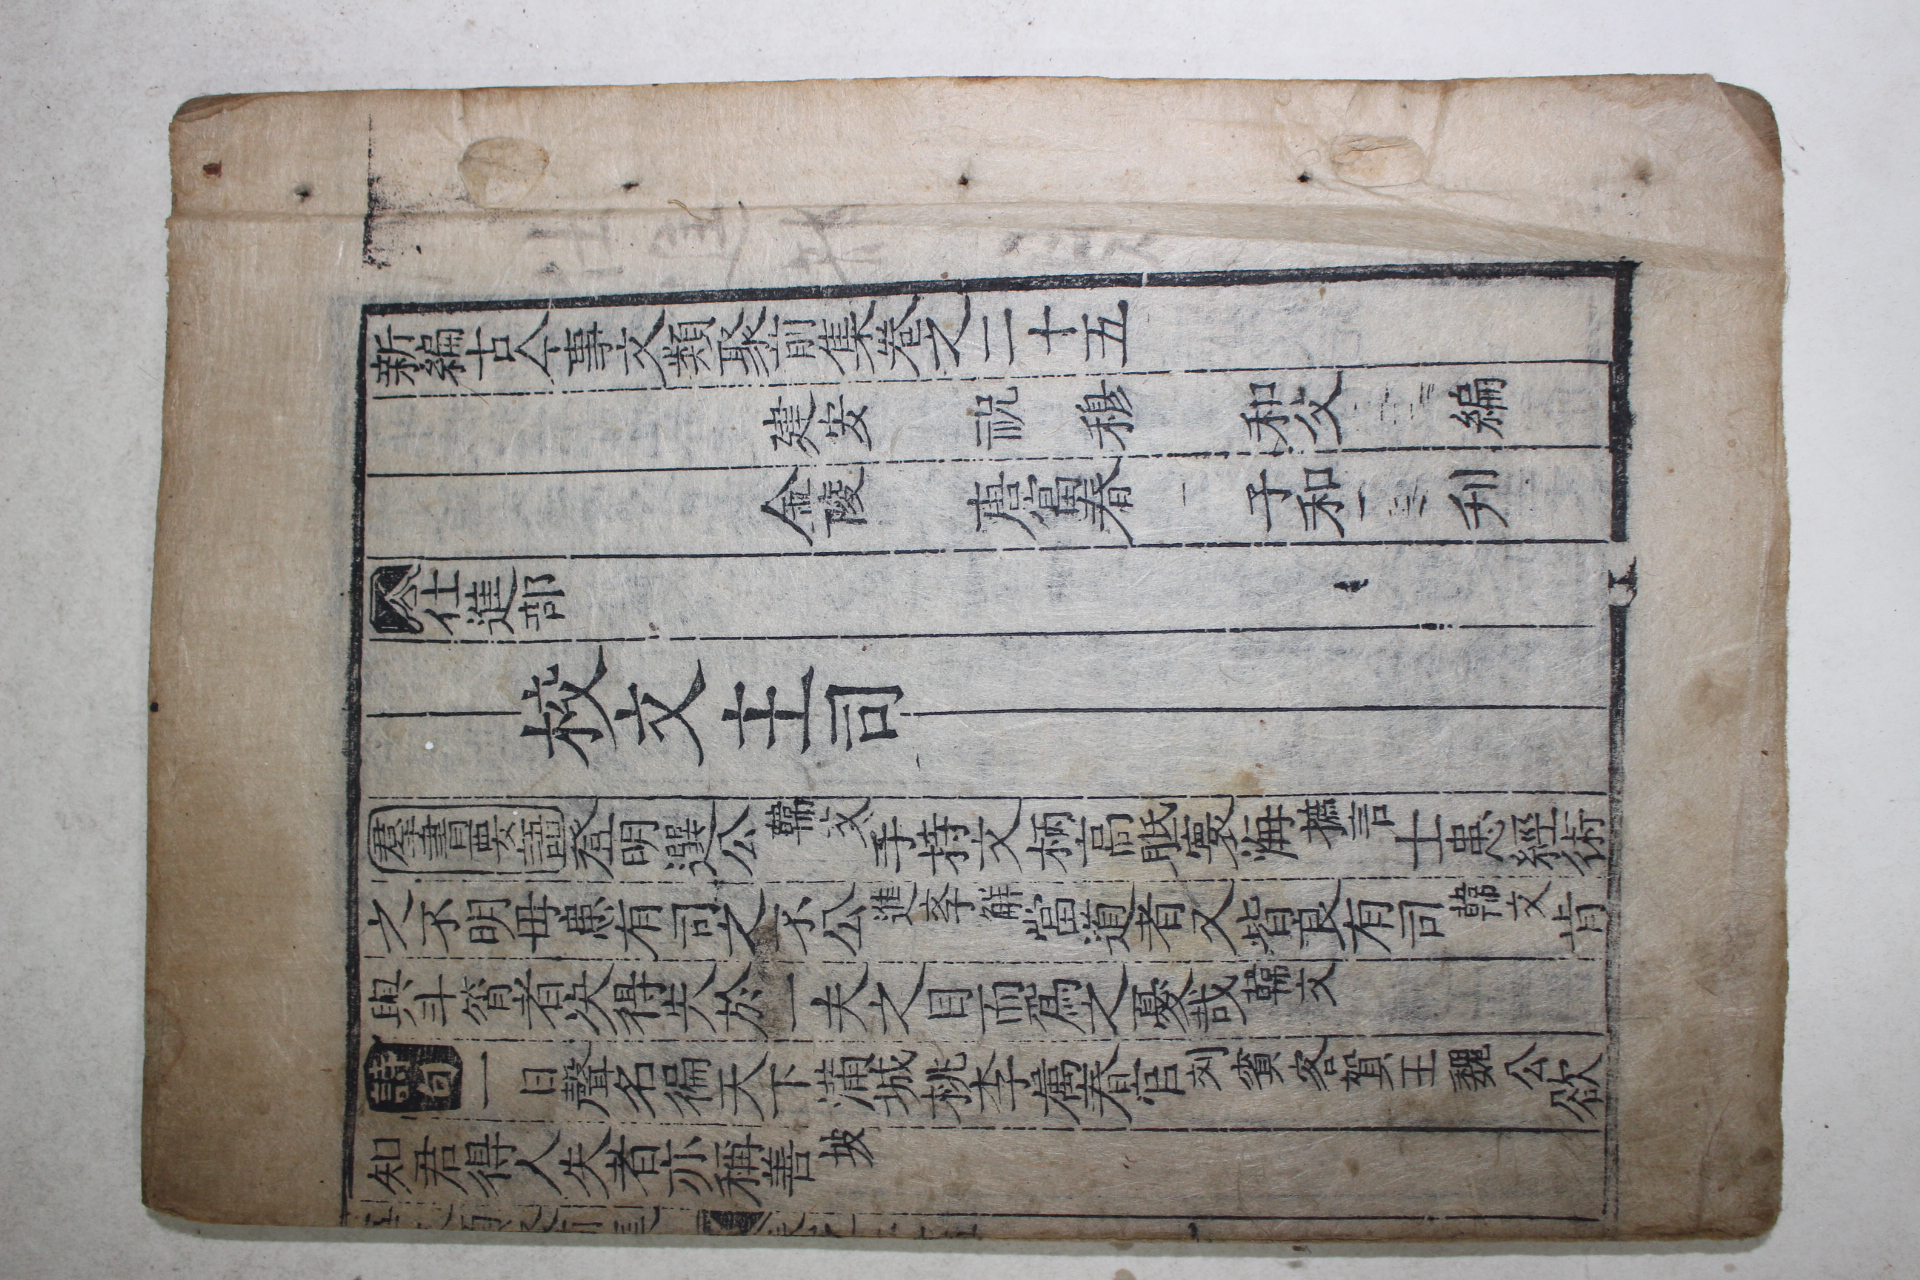 新編古今事文類聚前集卷之二十五
建安 祝穆 和父 編
金陵 唐富春 子和 刋
仕進部
校文主司
羣書要語登明選公韓文手持文柄高眂寰海摭言士患經術
之不明毋患有司之不公進孝觧當道者又皆良有司韓文肯
與斗筲者决得失於一夫之目而爲之憂哉韓文
詩句一日聲名徧天下滿城桃李属春官刘賓客賀王魏公欲
知君得人失者亦稱善坡